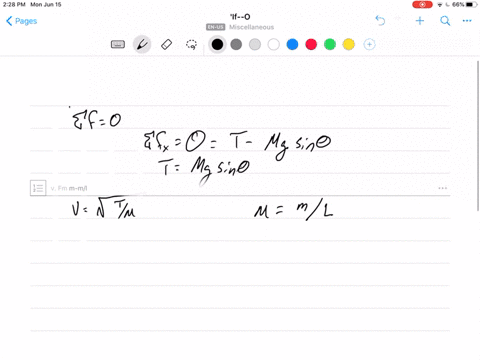 2:28 PM Mon Jun 15
66%
Pages
'If--O
EN-US Miscellaneous
ΣF = 0
ΣFx = 0 = T - Mg sinθ
T = Mg sinθ
v. Fm m-m/l
V = √T/μ μ = m/L